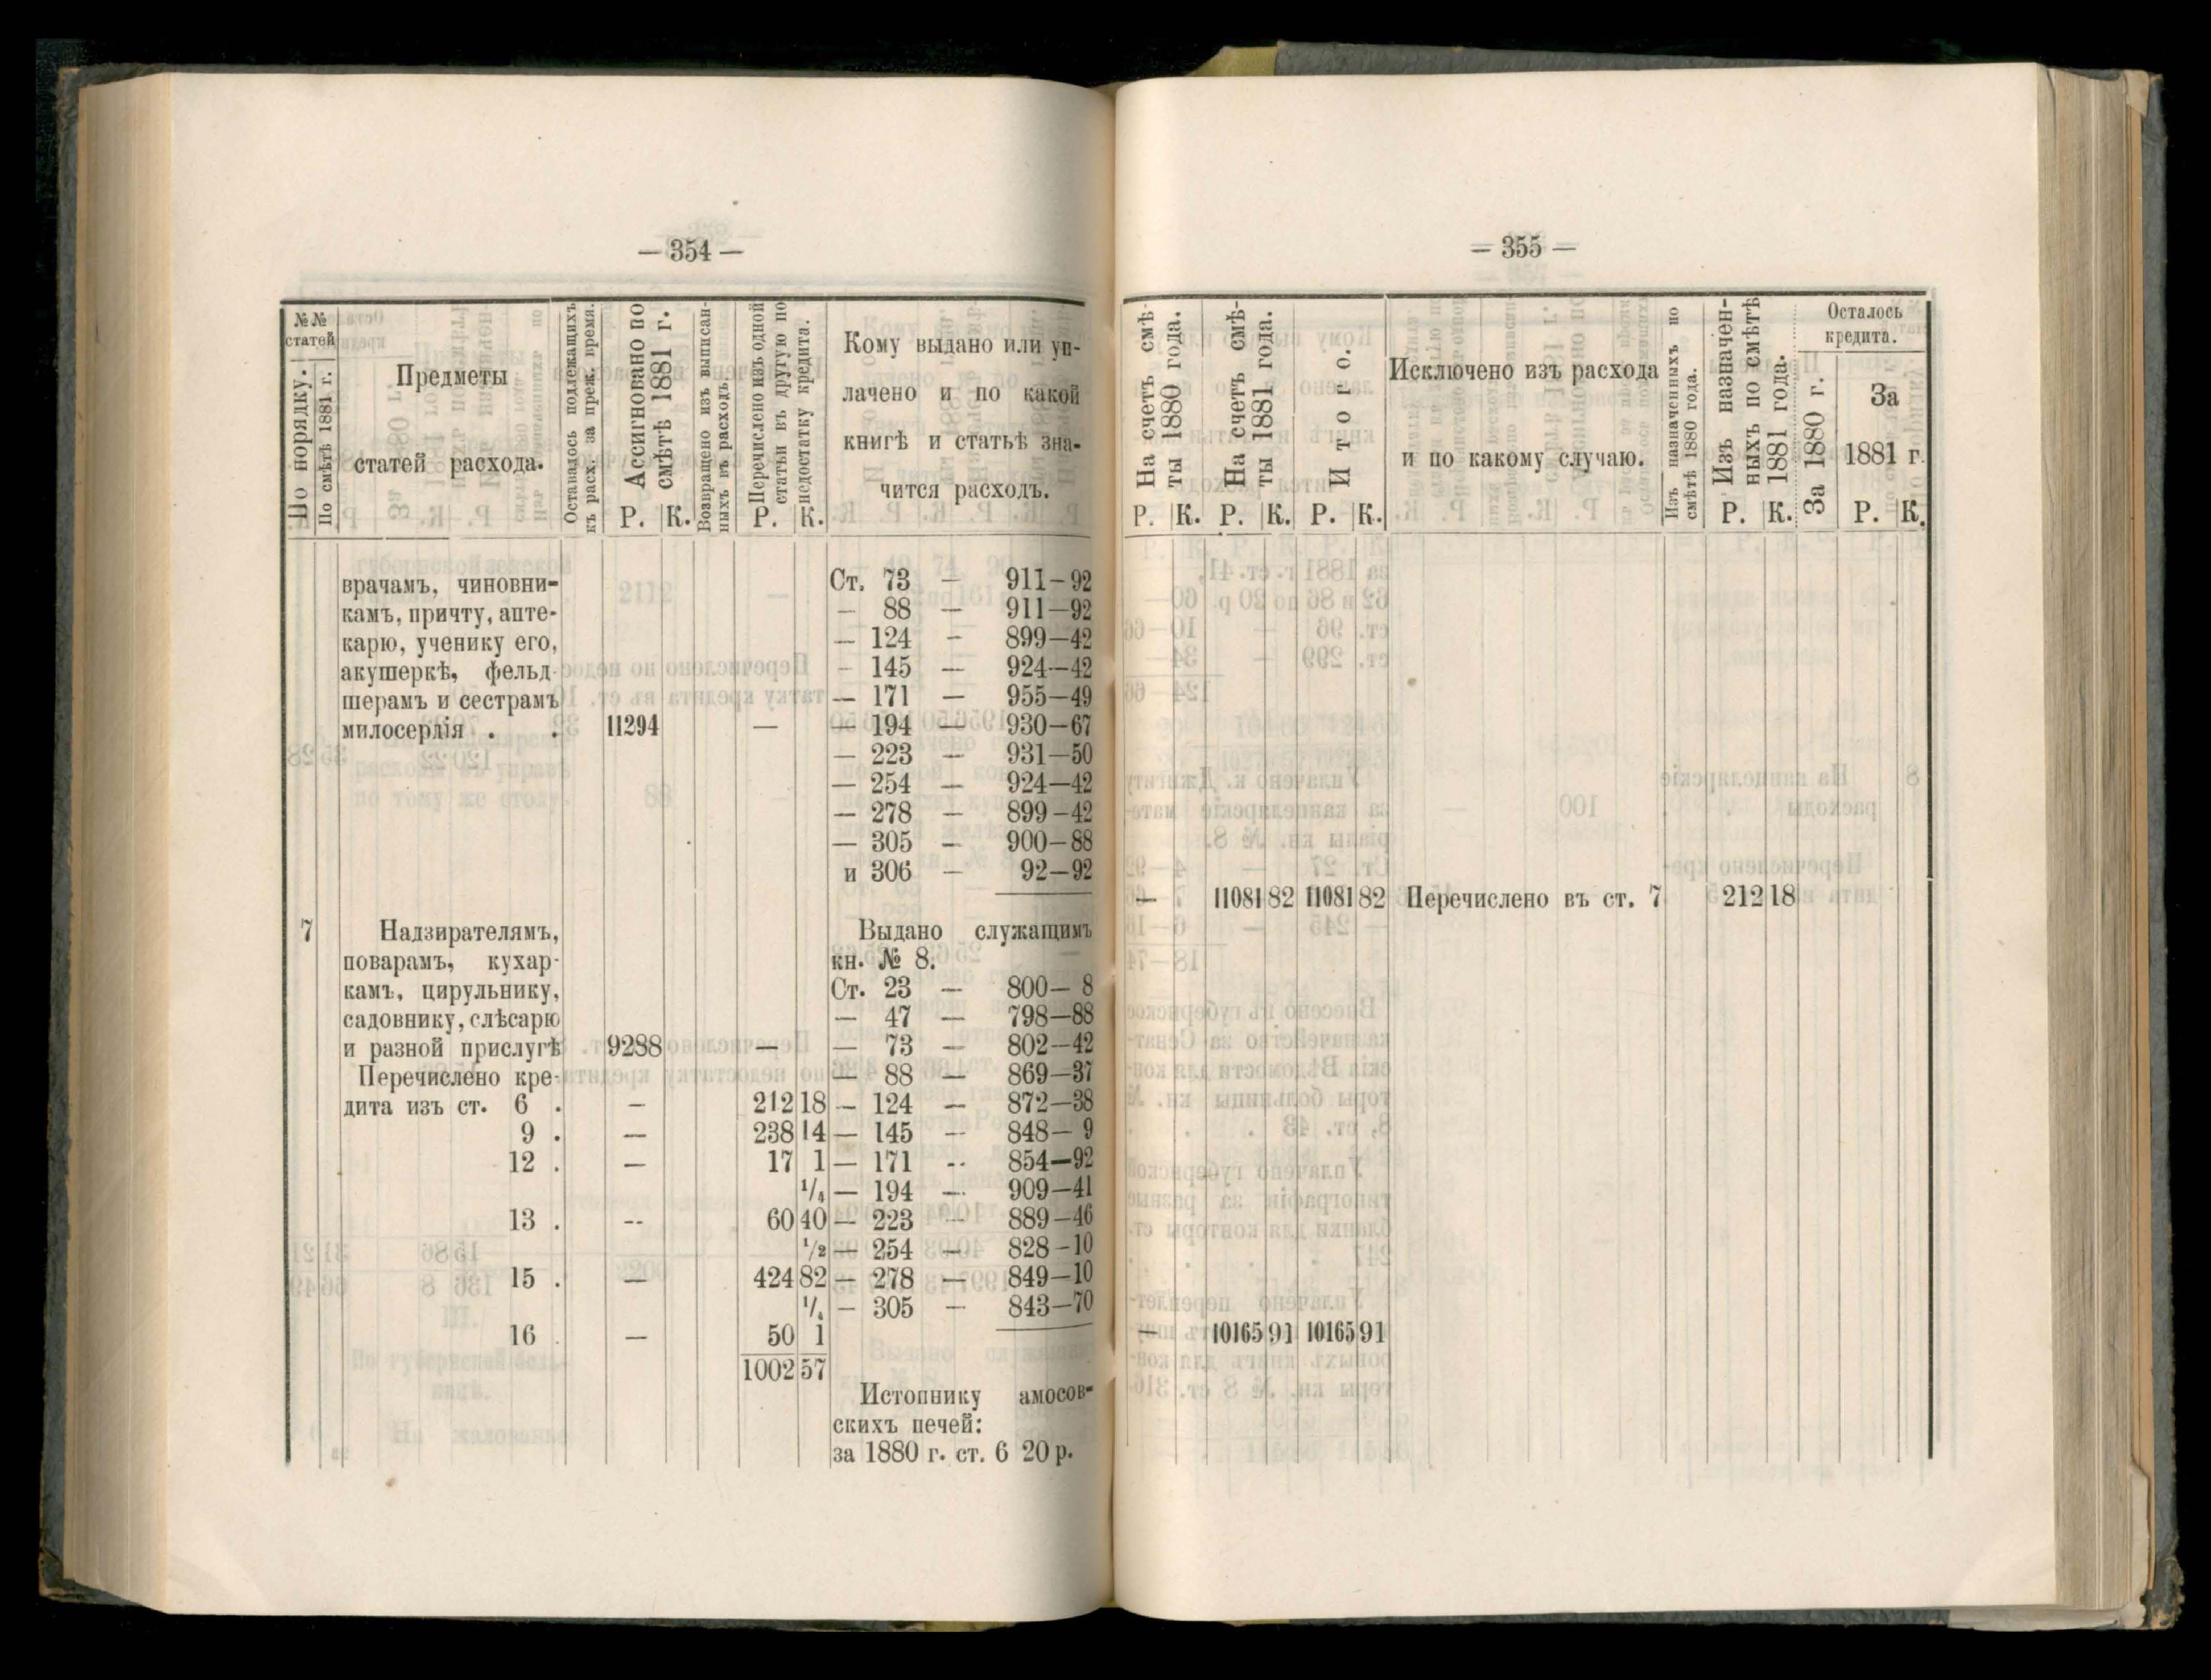 — 354 —
№№ статей
По порядку.
По смѣтѣ 1881 г.
Предметы
статей расхода.
Оставалось подлежащихъ
къ расх. за преж. время.
Ассигновано по
смѣтѣ 1881 г.
Р. К.
Возвращено изъ выписан-
ныхъ въ расходъ.
Перечислено изъ одной
статьи въ другую по
недостатку кредита.
Р. К.
Кому выдано или уп-
лачено и по какой
книгѣ и статьѣ зна-
чится расходъ.
врачамъ, чиновни- Ст. 73 — 911—92
камъ, причту, апте- — 88 — 911—92
карю, ученику его, — 124 — 899—42
акушеркѣ, фельд- — 145 — 924—42
шерамъ и сестрамъ — 171 — 955—49
милосердія . . 11294 — — 194 — 930—67
— 223 — 931—50
— 254 — 924—42
— 278 — 899—42
— 305 — 900—88
и 306 — 92—92
7 Надзирателямъ, Выдано служащимъ
поварамъ, кухар- кн. № 8.
камъ, цирульнику, Ст. 23 — 800— 8
садовнику, слѣсарю — 47 — 798—88
и разной прислугѣ 9288 — — 73 — 802—42
Перечислено кре- — 88 — 869—37
дита изъ ст. 6 . — 212 18 — 124 — 872—38
9 . — 238 14 — 145 — 848— 9
12 . — 17 1 — 171 — 854—92
1/4 — 194 — 909—41
13 . — 60 40 — 223 — 889—46
1/2 — 254 — 828—10
15 . — 424 82 — 278 — 849—10
1/4 — 305 — 843—70
16 . — 50 1
1002 57
Истопнику амосов-
скихъ печей:
за 1880 г. ст. 6 20 р.
— 355 —
На счетъ смѣ-
ты 1880 года.
Р. К.
На счетъ смѣ-
ты 1881 года.
Р. К.
Итого.
Р. К.
Исключено изъ расхода
и по какому случаю.
Изъ назначенныхъ по
смѣтѣ 1880 года.
Изъ назначен-
ныхъ по смѣтѣ
1881 года.
Р. К.
Осталось
кредита.
За 1880 г.
За
1881 г.
Р. К.
— 11081 82 11081 82 Перечислено въ ст. 7 212 18
— 10165 91 10165 91